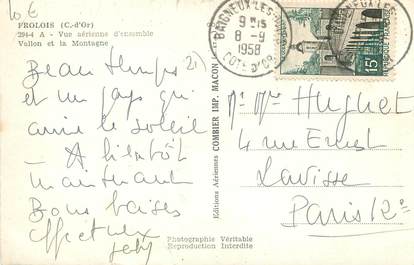 10 €
FROLOIS (C.-d'Or)
294-4 A - Vue aérienne d'ensemble
Vallon et la Montagne
Beau temps
et un pays qui
aime le soleil
A bientôt
maintenant
Bons baisers
affectueux
Photographie Véritable
Reproduction Interdite
Editions Aériennes COMBIER IMP. MACON
BAIGNEUX-LES-
9 H 15
8 - 9
1958
COTE-D'OR
15F
Mr Mme Huguet
4 rue Ernest
Lavisse
Paris 12e